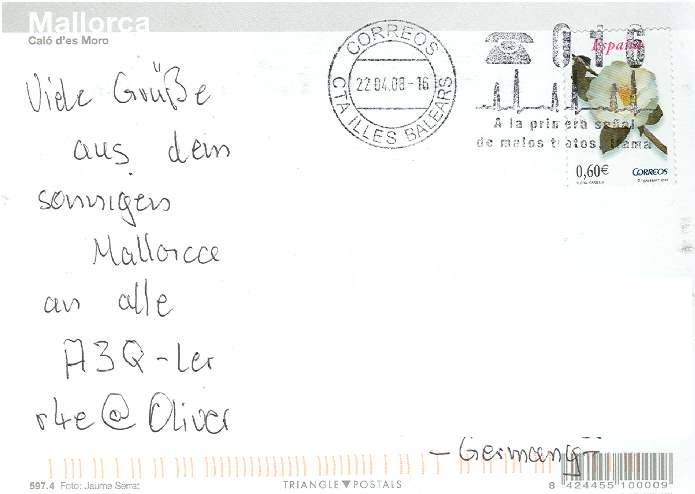 Mallorca
Caló d'es Moro
Viele Grüße
aus dem
sonnigen
Mallorca
an alle
A3Q-ler
r4e@Oliver
CORREOS
22.04.08-16
CTA ILLES BALEARS
016
A la primera señal
de malos tratos, llama
España
0,60€
CORREOS
-Germany-
597.4 Foto: Jaume Serrat
TRIANGLE▼POSTALS
8 424455 100009